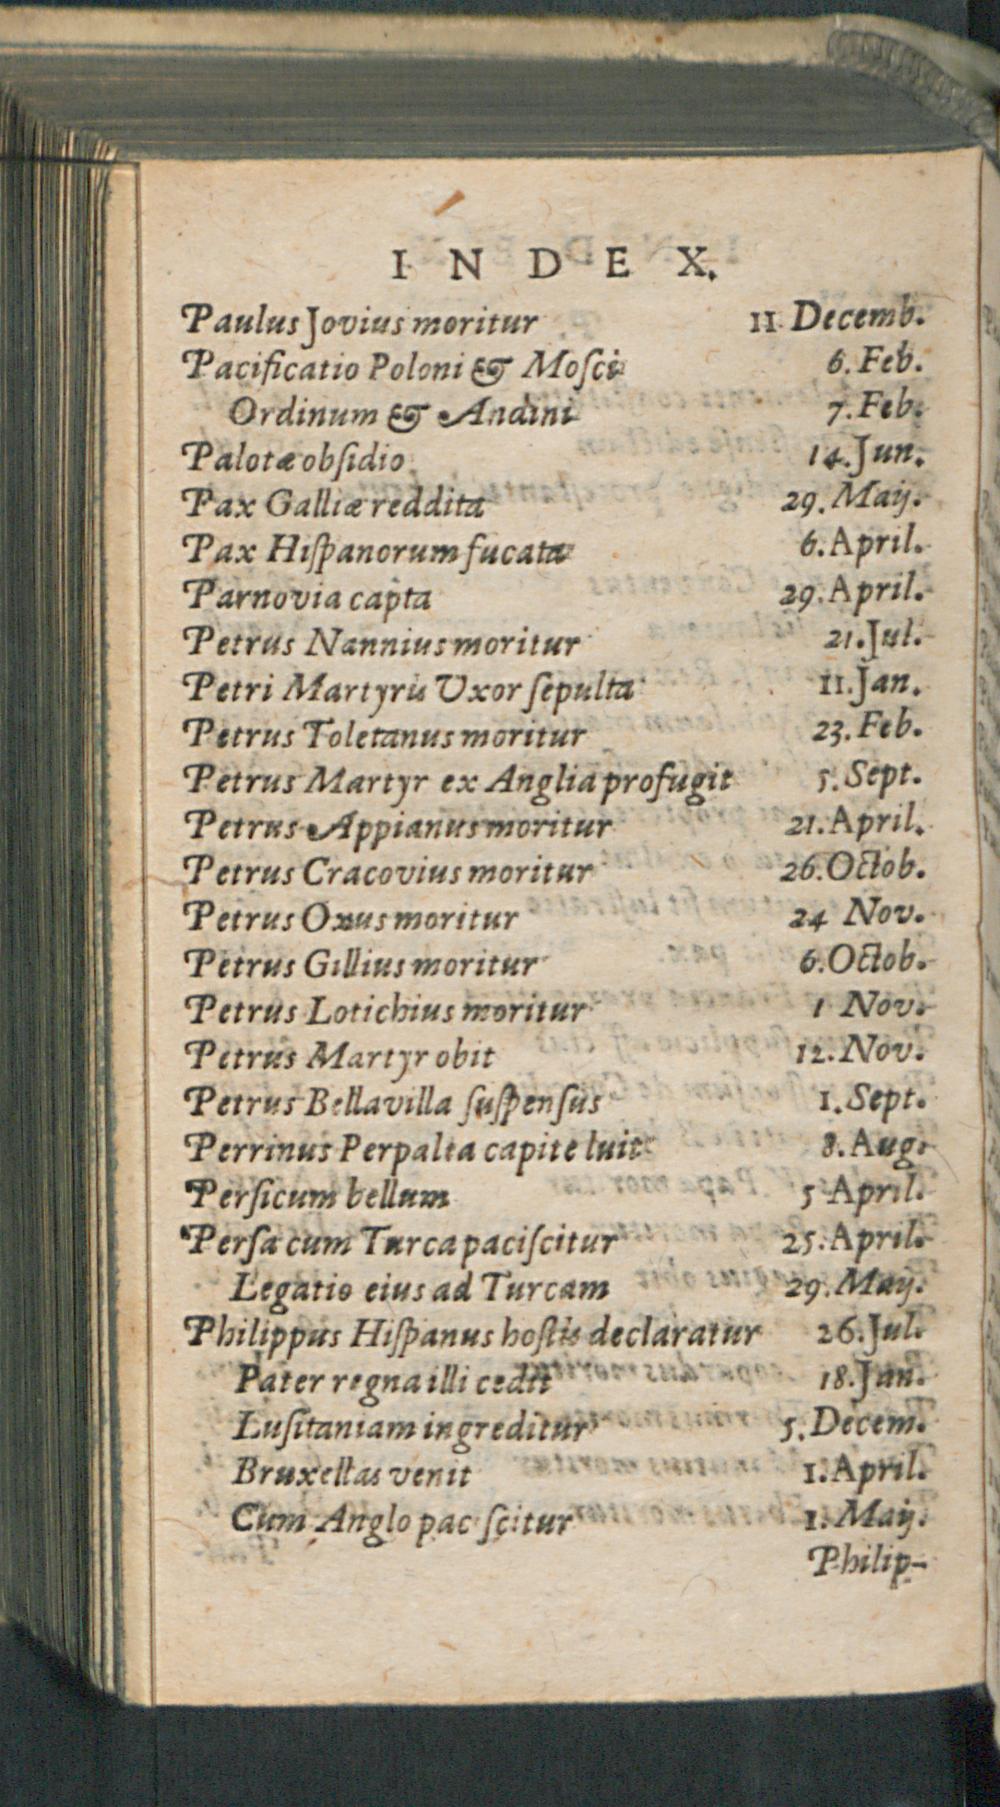 INDEX.
Paulus Jovius moritur 11 Decemb.
Pacificatio Poloni & Moſci 6. Feb.
Ordinum & Andini 7. Feb.
Palotæ obſidio 14. Jun.
Pax Galliæ reddita 29. Maij.
Pax Hiſpanorum fucata 6. April.
Parnovia capta 29. April.
Petrus Nannius moritur 21. Jul.
Petri Martyris Uxor ſepulta 11. Jan.
Petrus Toletanus moritur 23. Feb.
Petrus Martyr ex Anglia profugit 5. Sept.
Petrus Appianus moritur 21. April.
Petrus Cracovius moritur 26. Octob.
Petrus Oxus moritur 24 Nov.
Petrus Gillius moritur 6. Octob.
Petrus Lotichius moritur 1 Nov.
Petrus Martyr obit 12. Nov.
Petrus Bellavilla ſuſpenſus 1. Sept.
Perrinus Perpalta capite luit 8. Aug.
Perſicum bellum 5 April.
Perſa cum Turca paciſcitur 25. April.
Legatio eius ad Turcam 29. Maij.
Philippus Hiſpanus hoſtis declaratur 26. Jul.
Pater regna illi cedit 18. Jan.
Luſitaniam ingreditur 5. Decem.
Bruxellas venit 1. April.
Cum Anglo pac ſcitur 1. Maij.
Philip-